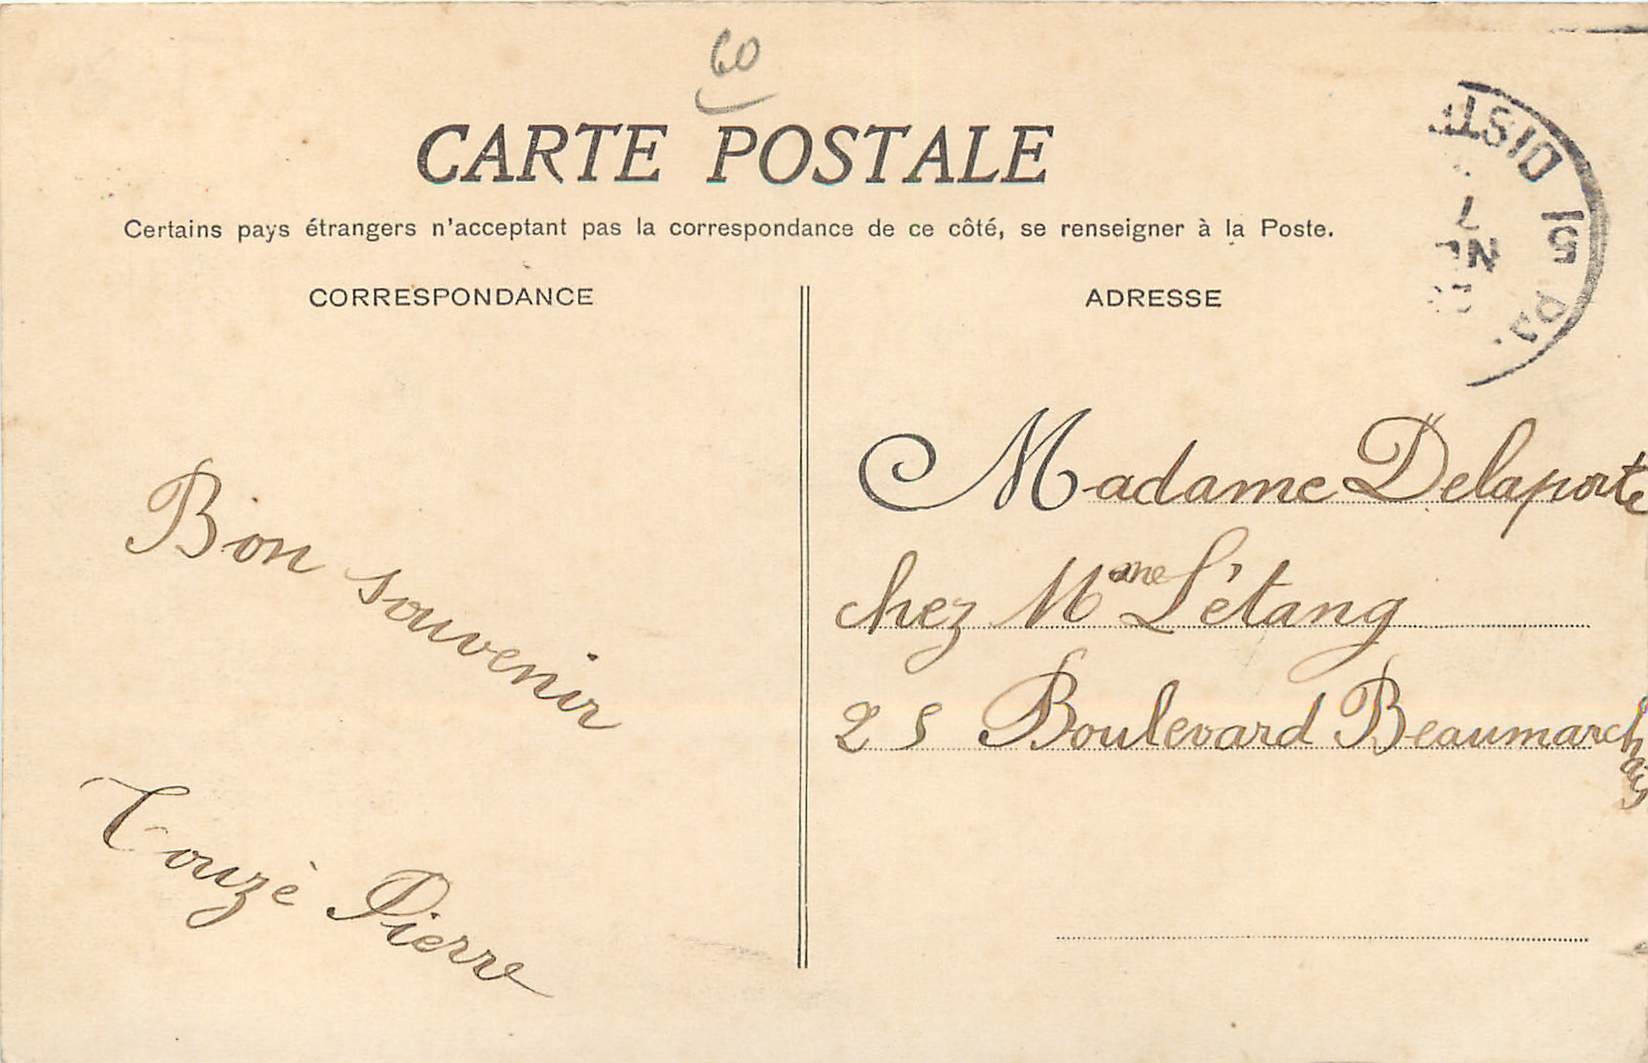 60
CARTE POSTALE
Certains pays étrangers n'acceptant pas la correspondance de ce côté, se renseigner à la Poste.
CORRESPONDANCE
ADRESSE
DIST
7
5
Bon souvenir
Touzé Pierre
Madame Delaporte
chez Mme L'étang
25 Boulevard Beaumarchais